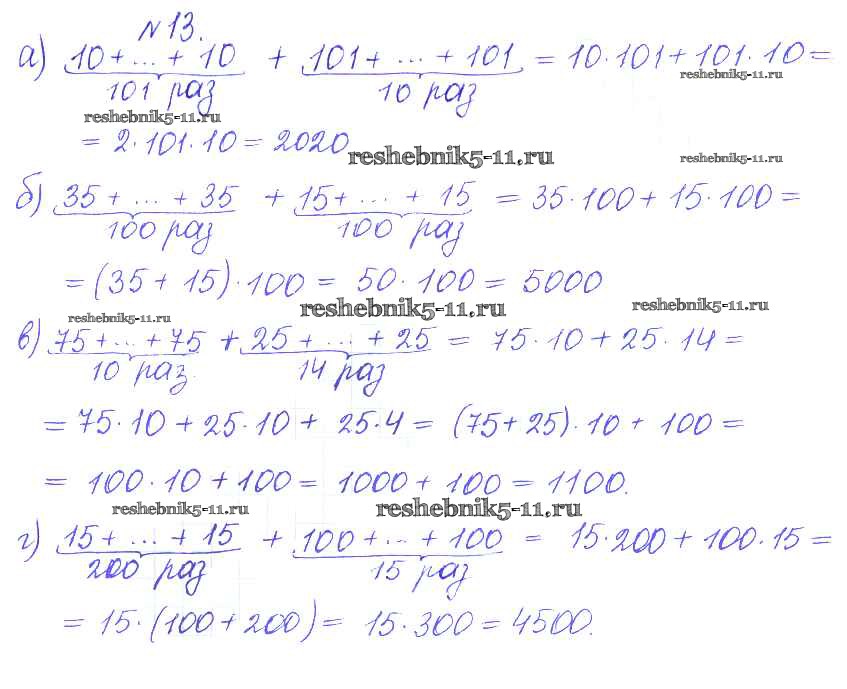 № 13.
а) 10 + ... + 10 + 101 + ... + 101 = 10 · 101 + 101 · 10 =
101 раз 10 раз
reshebnik5-11.ru
reshebnik5-11.ru
= 2 · 101 · 10 = 2020
reshebnik5-11.ru
reshebnik5-11.ru
б) 35 + ... + 35 + 15 + ... + 15 = 35 · 100 + 15 · 100 =
100 раз 100 раз
= (35 + 15) · 100 = 50 · 100 = 5000
reshebnik5-11.ru
reshebnik5-11.ru
reshebnik5-11.ru
в) 75 + ... + 75 + 25 + ... + 25 = 75 · 10 + 25 · 14 =
10 раз. 14 раз
= 75 · 10 + 25 · 10 + 25 · 4 = (75 + 25) · 10 + 100 =
= 100 · 10 + 100 = 1000 + 100 = 1100.
reshebnik5-11.ru
reshebnik5-11.ru
г) 15 + ... + 15 + 100 + ... + 100 = 15 · 200 + 100 · 15 =
200 раз 15 раз
= 15 · (100 + 200) = 15 · 300 = 4500.